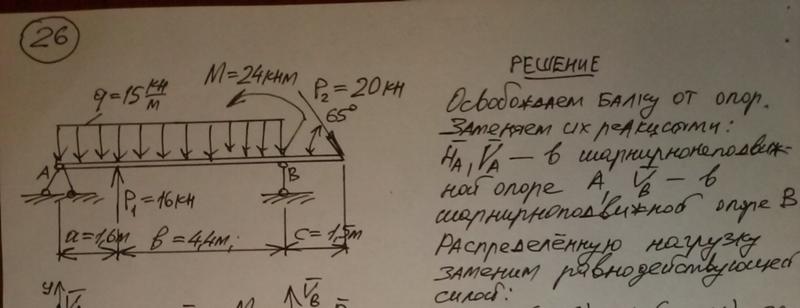 26
q=15 кн/м
M=24кнм
P₂=20кн
65°
A
B
P₁=16кн
a=1,6м
b=4,4м;
c=1,5м
y
V̄B
РЕШЕНИЕ
Освобождаем балку от опор.
Заменяем их реакциями:
H̄A, V̄A – в шарнирнонеподвиж-
ной опоре A, V̄B – в
шарнирноподвижной опоре B
Распределённую нагрузку
заменим равнодействующей
силой: